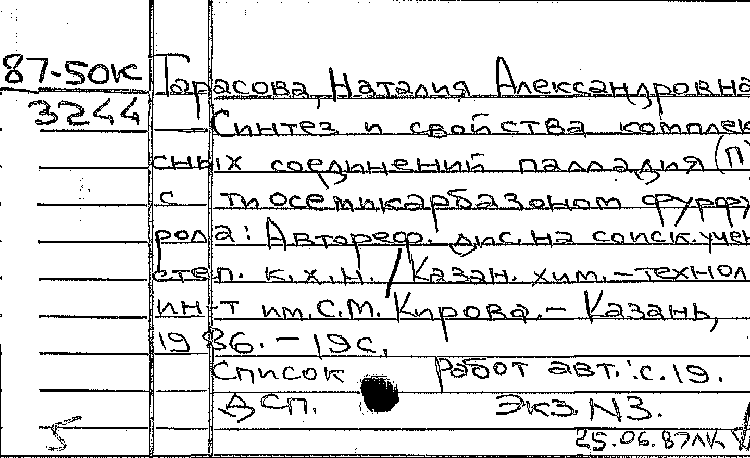 87-50к Тарасова, Наталия Александровна
3244 Синтез и свойства комплек
сных соединений палладия (П)
с тиосемикарбазоном фурфу
рола: Автореф. дис. на соиск. учен
степ. к.х.н. / Казан. хим.-технол
ин-т им. С.М. Кирова.- Казань,
1986.-19с.
Список работ авт.: с.19.
ДСП. Экз. N3.
5 25.06.87ЛК